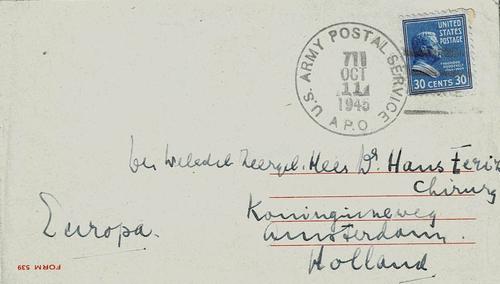 U.S. ARMY POSTAL SERVICE
711
OCT
11
1945
A.P.O
UNITED
STATES
POSTAGE
30 CENTS 30
den Weledel Zeergel. Heer Dr Hans Feriz
Chirurg
Koninginneweg
Amsterdam.
Holland
Europa.
FORM 539